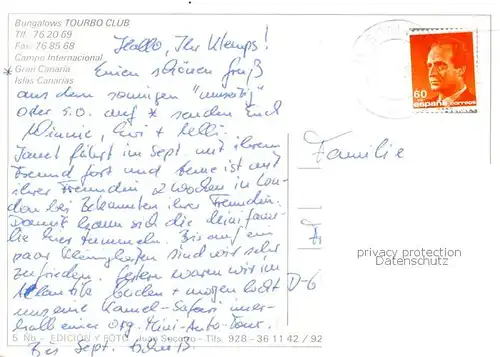 Bungalows TOURBO CLUB
Tlf. 76 20 69
Fax: 76 85 68
Campo Internacional
Gran Canaria
Islas Canarias
Hallo, Ihr Klemps!
* Einen schönen Gruß
aus dem sonnigen "
oder s.o. auf * senden Euch
Winnie, + Melli.
Janet fährt im Sept mit ihrem
Freund fort und ist mit
ihrer Freundin 2 Wochen in Lon-
don bei Bekannten ihrer Freundin.
Damit kann sich die Minifami-
lie hier tummeln. Bis auf ein
paar Kleinigkeiten sind wir sehr
zufrieden. Gestern waren wir im
Atlantik baden + morgen
uns eine Kamel-Safari inner-
halb einer org. Mini-Auto-Tour.
Bis Sept. Tschüß.
6 Nu - EDICION Y FOTO: Juan Socorro - Tlfs. 928 - 36 11 42 / 92
60
españa correos
Familie
D-6
privacy protection
Datenschutz